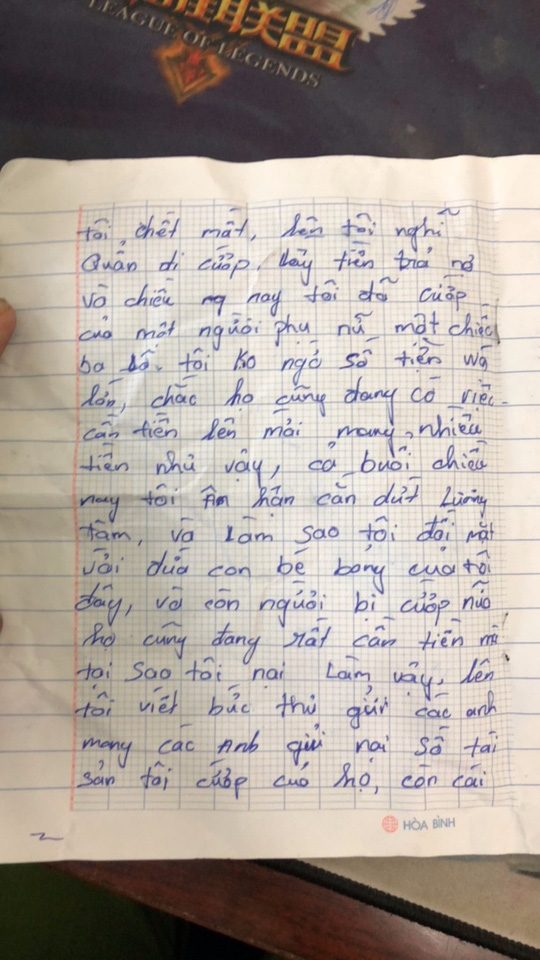 联盟
LEAGUE OF LEGENDS
tôi chết mất, lên tôi nghĩ
Quẩn đi cướp. lấy tiền trả nợ
và chiều ng nay tôi đã cướp
của một người phụ nữ một chiếc
ba lô. tôi ko ngờ số tiền wá
lớn, chắc họ cũng đang có việc
cần tiền lên mới mang nhiều
tiền như vậy, cả buổi chiều
nay tôi ân hận cắn dứt Lương
tâm, và Làm sao tôi đối mặt
với đứa con bé bỏng của tôi
đây, và còn người bị cướp nữa
họ cũng đang rất cần tiền mà
tại sao tôi nại Làm vậy, lên
tôi viết bức thư gửi các anh
mong các Anh gửi nại số tài
sản tôi cướp của họ, còn cái
HÒA BÌNH
2